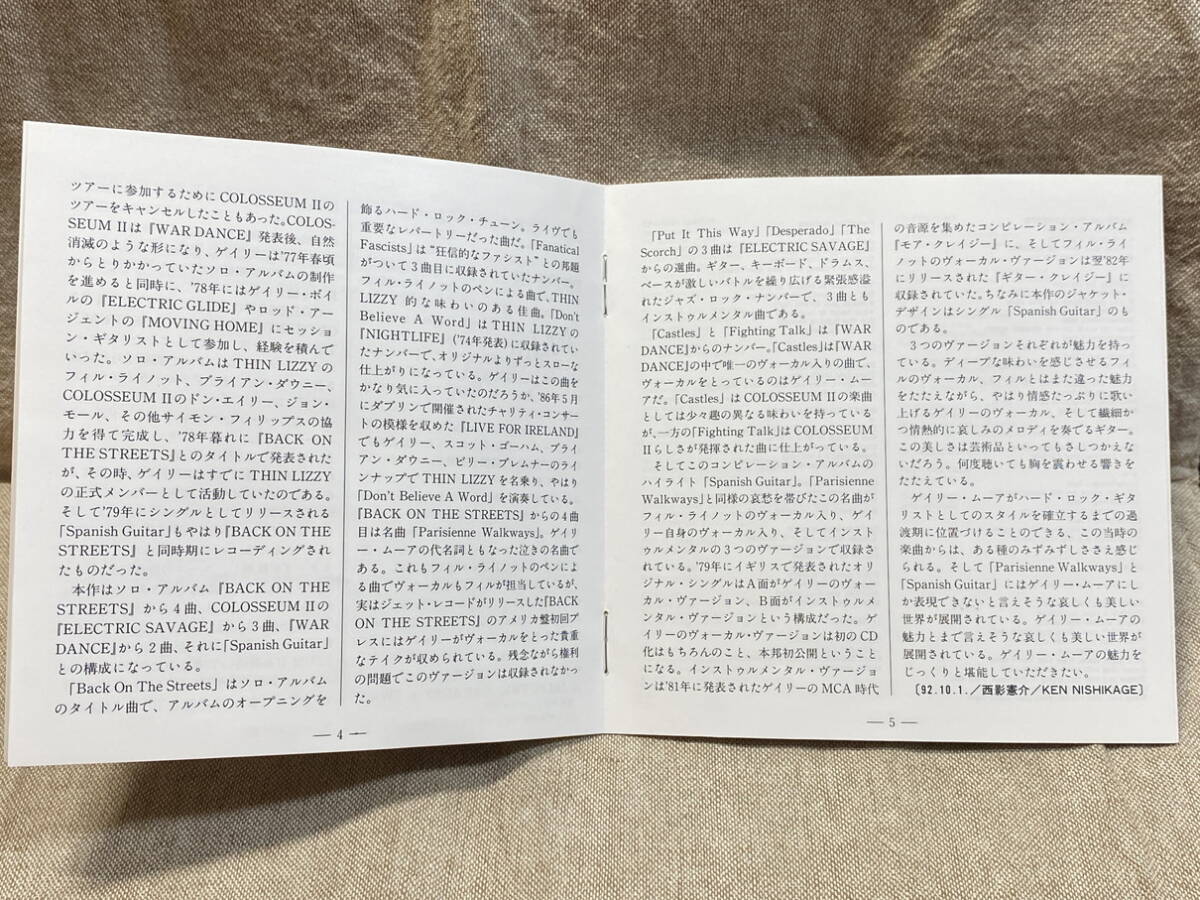 ツアーに参加するためにCOLOSSEUM IIの
ツアーをキャンセルしたこともあった。COLOS-
SEUM IIは『WAR DANCE』発表後、自然
消滅のような形になり、ゲイリーは'77年春頃
からとりかかっていたソロ・アルバムの制作
を進めると同時に、'78年にはゲイリー・ボイ
ルの『ELECTRIC GLIDE』やロッド・アー
ジェントの『MOVING HOME』にセッショ
ン・ギタリストとして参加し、経験を積んで
いった。ソロ・アルバムはTHIN LIZZYの
フィル・ライノット、ブライアン・ダウニー、
COLOSSEUM IIのドン・エイリー、ジョン・
モール、その他サイモン・フィリップスの協
力を得て完成し、'78年暮れに『BACK ON
THE STREETS』とのタイトルで発表された
が、その時、ゲイリーはすでにTHIN LIZZY
の正式メンバーとして活動していたのである。
そして'79年にシングルとしてリリースされる
「Spanish Guitar」もやはり『BACK ON THE
STREETS』と同時期にレコーディングされ
たものだった。
　本作はソロ・アルバム『BACK ON THE
STREETS』から4曲、COLOSSEUM IIの
『ELECTRIC SAVAGE』から3曲、『WAR
DANCE』から2曲、それに「Spanish Guitar」
との構成になっている。
　「Back On The Streets」はソロ・アルバム
のタイトル曲で、アルバムのオープニングを
飾るハード・ロック・チューン。ライヴでも
重要なレパートリーだった曲だ。「Fanatical
Fascists」は“狂信的なファシスト”との邦題
がついて3曲目に収録されていたナンバー。
フィル・ライノットのペンによる曲で、THIN
LIZZY的な味わいのある佳曲。「Don't
Believe A Word」はTHIN LIZZYの
『NIGHTLIFE』('74年発表)に収録されてい
たナンバーで、オリジナルよりずっとスローな
仕上がりになっている。ゲイリーはこの曲を
かなり気に入っていたのだろうか、'86年5月
にダブリンで開催されたチャリティ・コンサー
トの模様を収めた『LIVE FOR IRELAND』
でもゲイリー、スコット・ゴーハム、ブライ
アン・ダウニー、ビリー・ブレムナーのライ
ンナップでTHIN LIZZYを名乗り、やはり
「Don't Believe A Word」を演奏している。
『BACK ON THE STREETS』からの4曲
目は名曲「Parisienne Walkways」。ゲイリ
ー・ムーアの代名詞ともなった泣きの名曲で
ある。これもフィル・ライノットのペンによ
る曲でヴォーカルもフィルが担当しているが、
実はジェット・レコードがリリースした『BACK
ON THE STREETS』のアメリカ盤初回プ
レスにはゲイリーがヴォーカルをとった貴重
なテイクが収められている。残念ながら権利
の問題でこのヴァージョンは収録されなかっ
た。
— 4 —
　「Put It This Way」「Desperado」「The
Scorch」の3曲は『ELECTRIC SAVAGE』
からの選曲。ギター、キーボード、ドラムス、
ベースが激しいバトルを繰り広げる緊張感溢
れたジャズ・ロック・ナンバーで、3曲とも
インストゥルメンタル曲である。
　「Castles」と「Fighting Talk」は『WAR
DANCE』からのナンバー。「Castles」は『WAR
DANCE』の中で唯一のヴォーカル入りの曲で、
ヴォーカルをとっているのはゲイリー・ムー
アだ。「Castles」はCOLOSSEUM IIの楽曲
としては少々趣の異なる味わいを持っている
が、一方の「Fighting Talk」はCOLOSSEUM
IIらしさが発揮された曲に仕上がっている。
　そしてこのコンピレーション・アルバムの
ハイライト「Spanish Guitar」。「Parisienne
Walkways」と同様の哀愁を帯びたこの名曲が
フィル・ライノットのヴォーカル入り、ゲイ
リー自身のヴォーカル入り、そしてインスト
ゥルメンタルの3つのヴァージョンで収録さ
れている。'79年にイギリスで発表されたオリ
ジナル・シングルはA面がゲイリーのヴォー
カル・ヴァージョン、B面がインストゥルメ
ンタル・ヴァージョンという構成だった。ゲ
イリーのヴォーカル・ヴァージョンは初のCD
化はもちろんのこと、本邦初公開ということ
になる。インストゥルメンタル・ヴァージョ
ンは'81年に発表されたゲイリーのMCA時代
の音源を集めたコンピレーション・アルバム
『モア・クレイジー』に、そしてフィル・ライ
ノットのヴォーカル・ヴァージョンは翌'82年
にリリースされた『ギター・クレイジー』に
収録されていた。ちなみに本作のジャケット・
デザインはシングル「Spanish Guitar」のも
のである。
　3つのヴァージョンそれぞれが魅力を持っ
ている。ディープな味わいを感じさせるフィ
ルのヴォーカル、フィルとはまた違った魅力
をたたえながら、やはり情感たっぷりに歌い
上げるゲイリーのヴォーカル、そして繊細か
つ情熱的に哀しみのメロディを奏でるギター。
この美しさは芸術品といってもさしつかえな
いだろう。何度聴いても胸を震わせる響きを
たたえている。
　ゲイリー・ムーアがハード・ロック・ギタ
リストとしてのスタイルを確立するまでの過
渡期に位置づけることのできる、この当時の
楽曲からは、ある種のみずみずしささえ感じ
られる。そして「Parisienne Walkways」と
「Spanish Guitar」にはゲイリー・ムーアにし
か表現できないと言えそうな哀しくも美しい
世界が展開されている。ゲイリー・ムーアの
魅力とまで言えそうな哀しくも美しい世界が
展開されている。ゲイリー・ムーアの魅力を
じっくりと堪能していただきたい。
〔92.10.1.／西影憲介／KEN NISHIKAGE〕
— 5 —